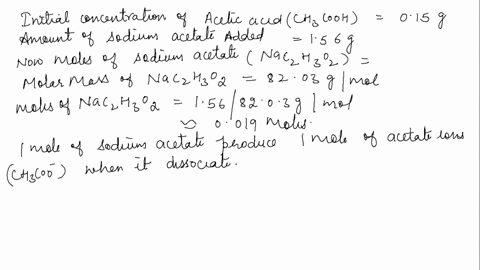 Initial concentration of Acetic acid (CH3COOH) = 0.15 g
Amount of sodium acetate Added = 1.56 g
Now moles of sodium acetate (NaC2H3O2) =
Molar Mass of NaC2H3O2 = 82.03 g/mol
moles of NaC2H3O2 = 1.56/82.0.3g/mol
≈ 0.019 moles.
1 mole of sodium acetate produce 1 mole of acetate ions
(CH3COO⁻) when it dissociate.